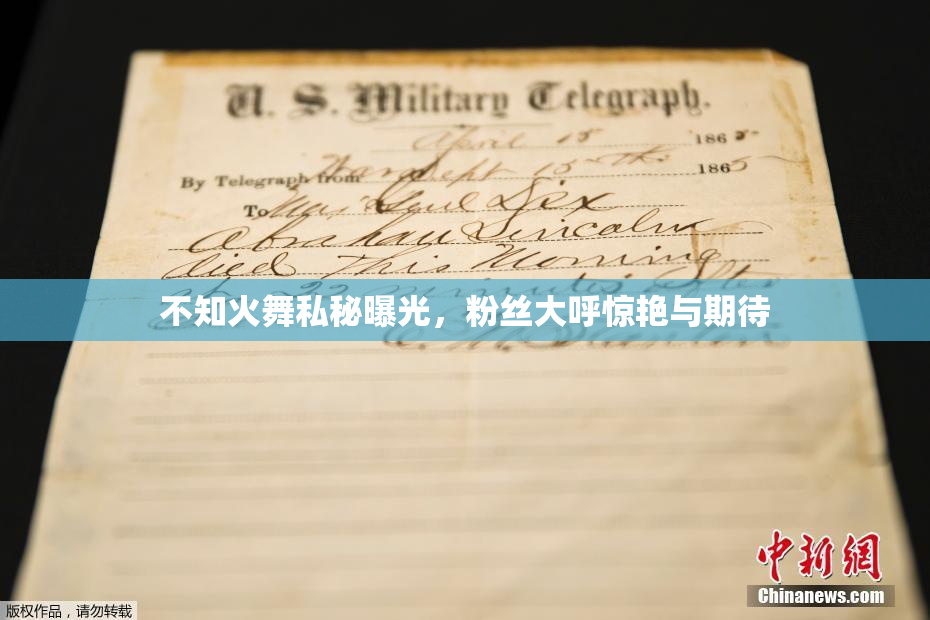 U. S. Military Telegraph.
April 15 1865
By Telegraph from War Dept 15th 1865
To Maj Genl Dix
Abraham Lincoln
died This Morning
at 22 minutes after
不知火舞私秘曝光，粉丝大呼惊艳与期待
E. M. Stanton
中新网
Chinanews.com
版权作品，请勿转载